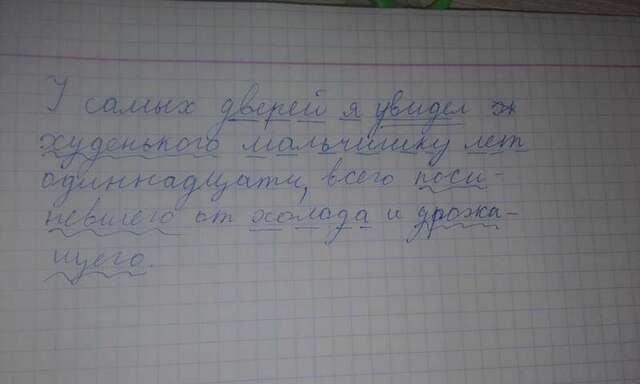 У самых дверей я увидел
худенького мальчишку лет
одиннадцати, всего поси-
невшего от холода и дрожа-
щего.